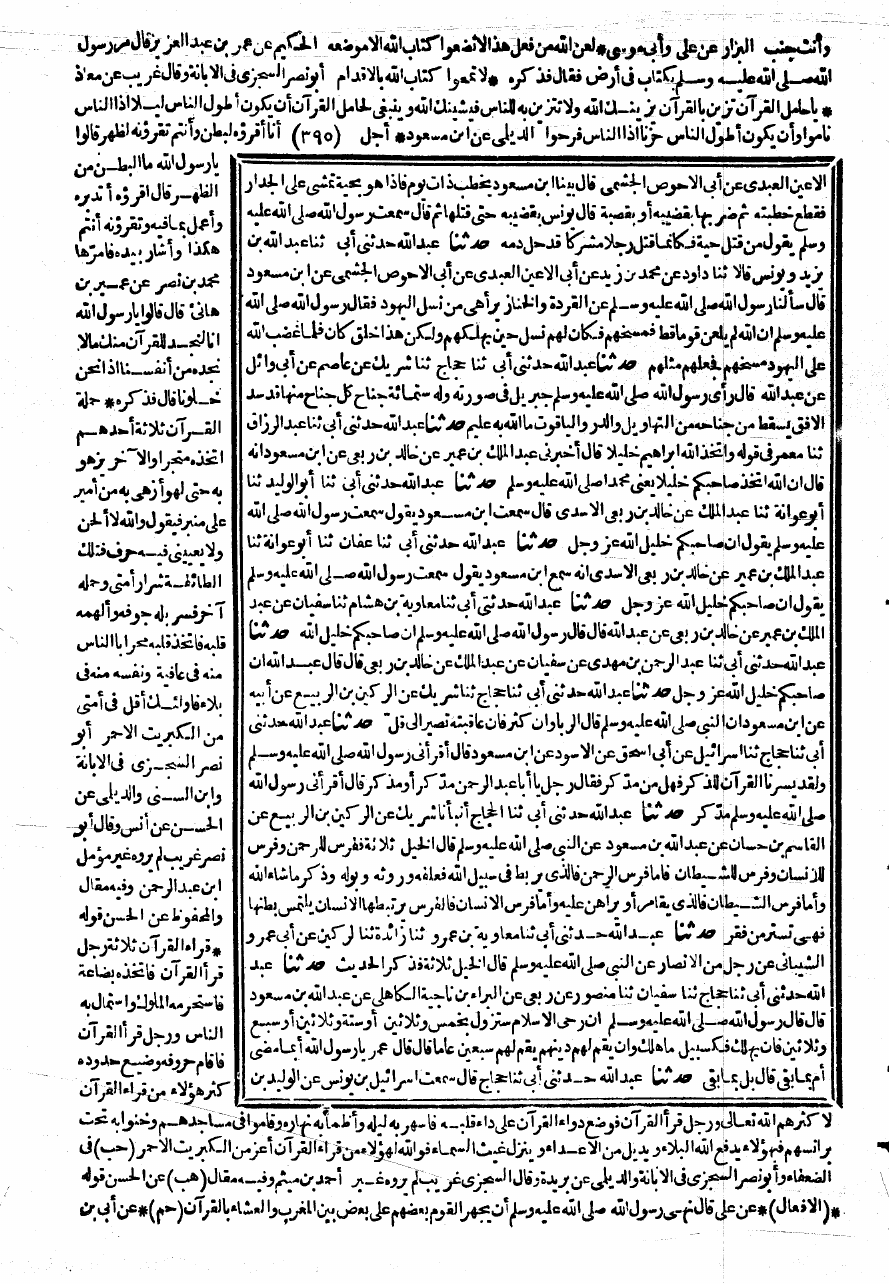 وأنت جنب البزار عن على وأبى موسى * لعن الله من فعل هذا لا تضعوا كتاب الله الا موضعه الحكيم عن عمر بن عبد العزيز قال مر رسول
الله صلى الله عليه وسلم بكتاب فى أرض فقال فذكره * لا تمعوا كتاب الله بالاقدام أبو نصر السجزى فى الابانة وقال غريب عن معاذ
* يا حامل القرآن تزين بالقرآن يزينك الله ولا تتزين به للناس فيشينك الله وينبغى لحامل القرآن أن يكون أطول الناس ليلا اذا الناس
ناموا وأن يكون أطول الناس حزنا اذا الناس فرحوا الديلى عن ابن مسعود * أجل (٣٩٥) أنا أقرؤه لبطن وأنتم تقرؤنه لظهر قالوا
يا رسول الله ما البطن من
الظهر قال اقرؤه أتدبره
وأعمل بما فيه وتقرؤنه أنتم
هكذا وأشار بيده فامرها
محمد بن نصر عن عمير بن
هانئ قال قالوا يا رسول الله
انا لنجد للقرآن منك مالا
نجده من أنفسنا اذا نحن
خلونا قال فذكره * حملة
القرآن ثلاثة أحدهم
اتخذه متجرا والآخر يزهو
به حتى لهو أزهى به من أمير
على منبر فيقول والله لا ألحن
ولا يعيينى فيه حرف فتلك
الطائفة شرار أمتى وحمله
آخر فسربله جوفه وألهمه
قلبه فاتخذ قلبه محرابا الناس
منه فى عافية ونفسه منه فى
بلاء فاولئك أقل فى أمتى
من الكبريت الاحمر أبو
نصر السجزى فى الابانة
وابن السنى والديلى عن
الحسن عن أنس وقال أبو
نصر غريب لم يروه غير مؤمل
ابن عبد الرحمن وفيه مقال
والمحفوظ عن الحسن قوله
* قراء القرآن ثلاثة رجل
قرأ القرآن فاتخذه بضاعة
فاستجر به الملوك واستمال به
الناس ورجل قرأ القرآن
فاقام حروفه وضيع حدوده
كثر هؤلاء من قراء القرآن
الاعين العبدى عن أبى الاحوص الجشمى قال بينا ابن مسعود يخطب ذات يوم فاذا هو بحية تمشى على الجدار
فقطع خطبته ثم ضربها بقضيبه أو بقصبة قال يونس بقضيبه حتى قتلها ثم قال سمعت رسول الله صلى الله عليه
وسلم يقول من قتل حية فكأنما قتل رجلا مشركا قد حل دمه حدثنا عبد الله حدثنى أبى ثنا عبد الله بن
يزيد ويونس قالا ثنا داود عن محمد بن زيد عن أبى الاعين العبدى عن أبى الاحوص الجشمى عن ابن مسعود
قال سألنا رسول الله صلى الله عليه وسلم عن القردة والخنازير أهى من نسل اليهود فقال رسول الله صلى الله
عليه وسلم ان الله لم يلعن قوما قط فمسخهم فكان لهم نسل حين يهلكهم ولكن هذا خلق كان فلما غضب الله
على اليهود مسخهم فجعلهم مثلهم حدثنا عبد الله حدثنى أبى ثنا حجاج ثنا شريك عن عاصم عن أبى وائل
عن عبد الله قال رأى رسول الله صلى الله عليه وسلم جبريل فى صورته وله ستمائة جناح كل جناح منها قد سد
الافق يسقط من جناحه من التهاويل والدر والياقوت ما الله به عليم حدثنا عبد الله حدثنى أبى ثنا عبد الرزاق
ثنا معمر فى قوله واتخذ الله ابراهيم خليلا قال أخبرنى عبد الملك بن عمير عن خالد بن ربعى عن ابن مسعود انه
قال ان الله اتخذ صاحبكم خليلا يعنى محمدا صلى الله عليه وسلم حدثنا عبد الله حدثنى أبى ثنا أبو الوليد ثنا
أبو عوانة ثنا عبد الملك عن خالد بن ربعى الاسدى قال سمعت ابن مسعود يقول سمعت رسول الله صلى الله
عليه وسلم يقول ان صاحبكم خليل الله عز وجل حدثنا عبد الله حدثنى أبى ثنا عفان ثنا أبو عوانة ثنا
عبد الملك بن عمير عن خالد بن ربعى الاسدى انه سمع ابن مسعود يقول سمعت رسول الله صلى الله عليه وسلم
يقول ان صاحبكم خليل الله عز وجل حدثنا عبد الله حدثنى أبى ثنا معاوية بن هشام ثنا سفيان عن عبد
الملك بن عمير عن خالد بن ربعى عن عبد الله قال قال رسول الله صلى الله عليه وسلم ان صاحبكم خليل الله حدثنا
عبد الله حدثنى أبى ثنا عبد الرحمن بن مهدى عن سفيان عن عبد الملك عن خالد بن ربعى قال قال عبد الله ان
صاحبكم خليل الله عز وجل حدثنا عبد الله حدثنى أبى ثنا حجاج ثنا شريك عن الركين بن الربيع عن أبيه
عن ابن مسعود ان النبى صلى الله عليه وسلم قال الربا وان كثر فان عاقبته تصير الى قل حدثنا عبد الله حدثنى
أبى ثنا حجاج ثنا اسرائيل عن أبى اسحق عن الاسود عن ابن مسعود قال أقرأنى رسول الله صلى الله عليه وسلم
ولقد يسرنا القرآن للذكر فهل من مذكر فقال رجل يا أبا عبد الرحمن مذكر أو مذكر قال أقرأنى رسول الله
صلى الله عليه وسلم مذكر حدثنا عبد الله حدثنى أبى ثنا الحجاج أنبأنا شريك عن الركين بن الربيع عن
القاسم بن حسان عن عبد الله بن مسعود عن النبى صلى الله عليه وسلم قال الخيل ثلاثة ففرس للرحمن وفرس
للانسان وفرس للشيطان فاما فرس الرحمن فالذى يربط فى سبيل الله فعلفه وروثه وبوله وذكر ما شاء الله
وأما فرس الشيطان فالذى يقامر أو يراهن عليه وأما فرس الانسان فالفرس يرتبطها الانسان يلتمس بطنها
فهى تستر من فقر حدثنا عبد الله حدثنى أبى ثنا معاوية بن عمرو ثنا زائدة ثنا لركين عن أبى عمرو
الشيبانى عن رجل من الانصار عن النبى صلى الله عليه وسلم قال الخيل ثلاثة فذكر الحديث حدثنا عبد
الله حدثنى أبى ثنا حجاج ثنا سفيان ثنا منصور عن ربعى عن البراء بن ناجية الكاهلى عن عبد الله بن مسعود
قال قال رسول الله صلى الله عليه وسلم ان رحى الاسلام ستزول بخمس وثلاثين أو ستة وثلاثين أو سبع
وثلاثين فان يهلك فكسبيل ما هلك وان يقم لهم دينهم يقم لهم سبعين عاما قال قال عمر يا رسول الله أبما مضى
أم بما بقى قال بل بما بقى حدثنا عبد الله حدثنى أبى ثنا حجاج قال سمعت اسرائيل بن يونس عن الوليد بن
لا كثرهم الله تعالى ورجل قرأ القرآن فوضع دواء القرآن على داء قلبه فاسهر به ليله وأظمأ به نهاره وقاموا فى مساجدهم وخنوا به تحت
برانسهم فبهؤلاء يدفع الله البلاء ويديل من الاعداء وينزل غيث السماء فوالله لهؤلاء من قراء القرآن أعز من الكبريت الاحمر (حب) فى
الضعفاء وأبو نصر السجزى فى الابانة والديلى عن بريدة وقال السجزى غريب لم يروه غير أحمد بن ميثم وفيه مقال (هب) عن الحسن قوله
* (الافعال) * عن على قال نهى رسول الله صلى الله عليه وسلم أن يجهر القوم بعضهم على بعض بين المغرب والعشاء بالقرآن (حم) * عن أبى بن